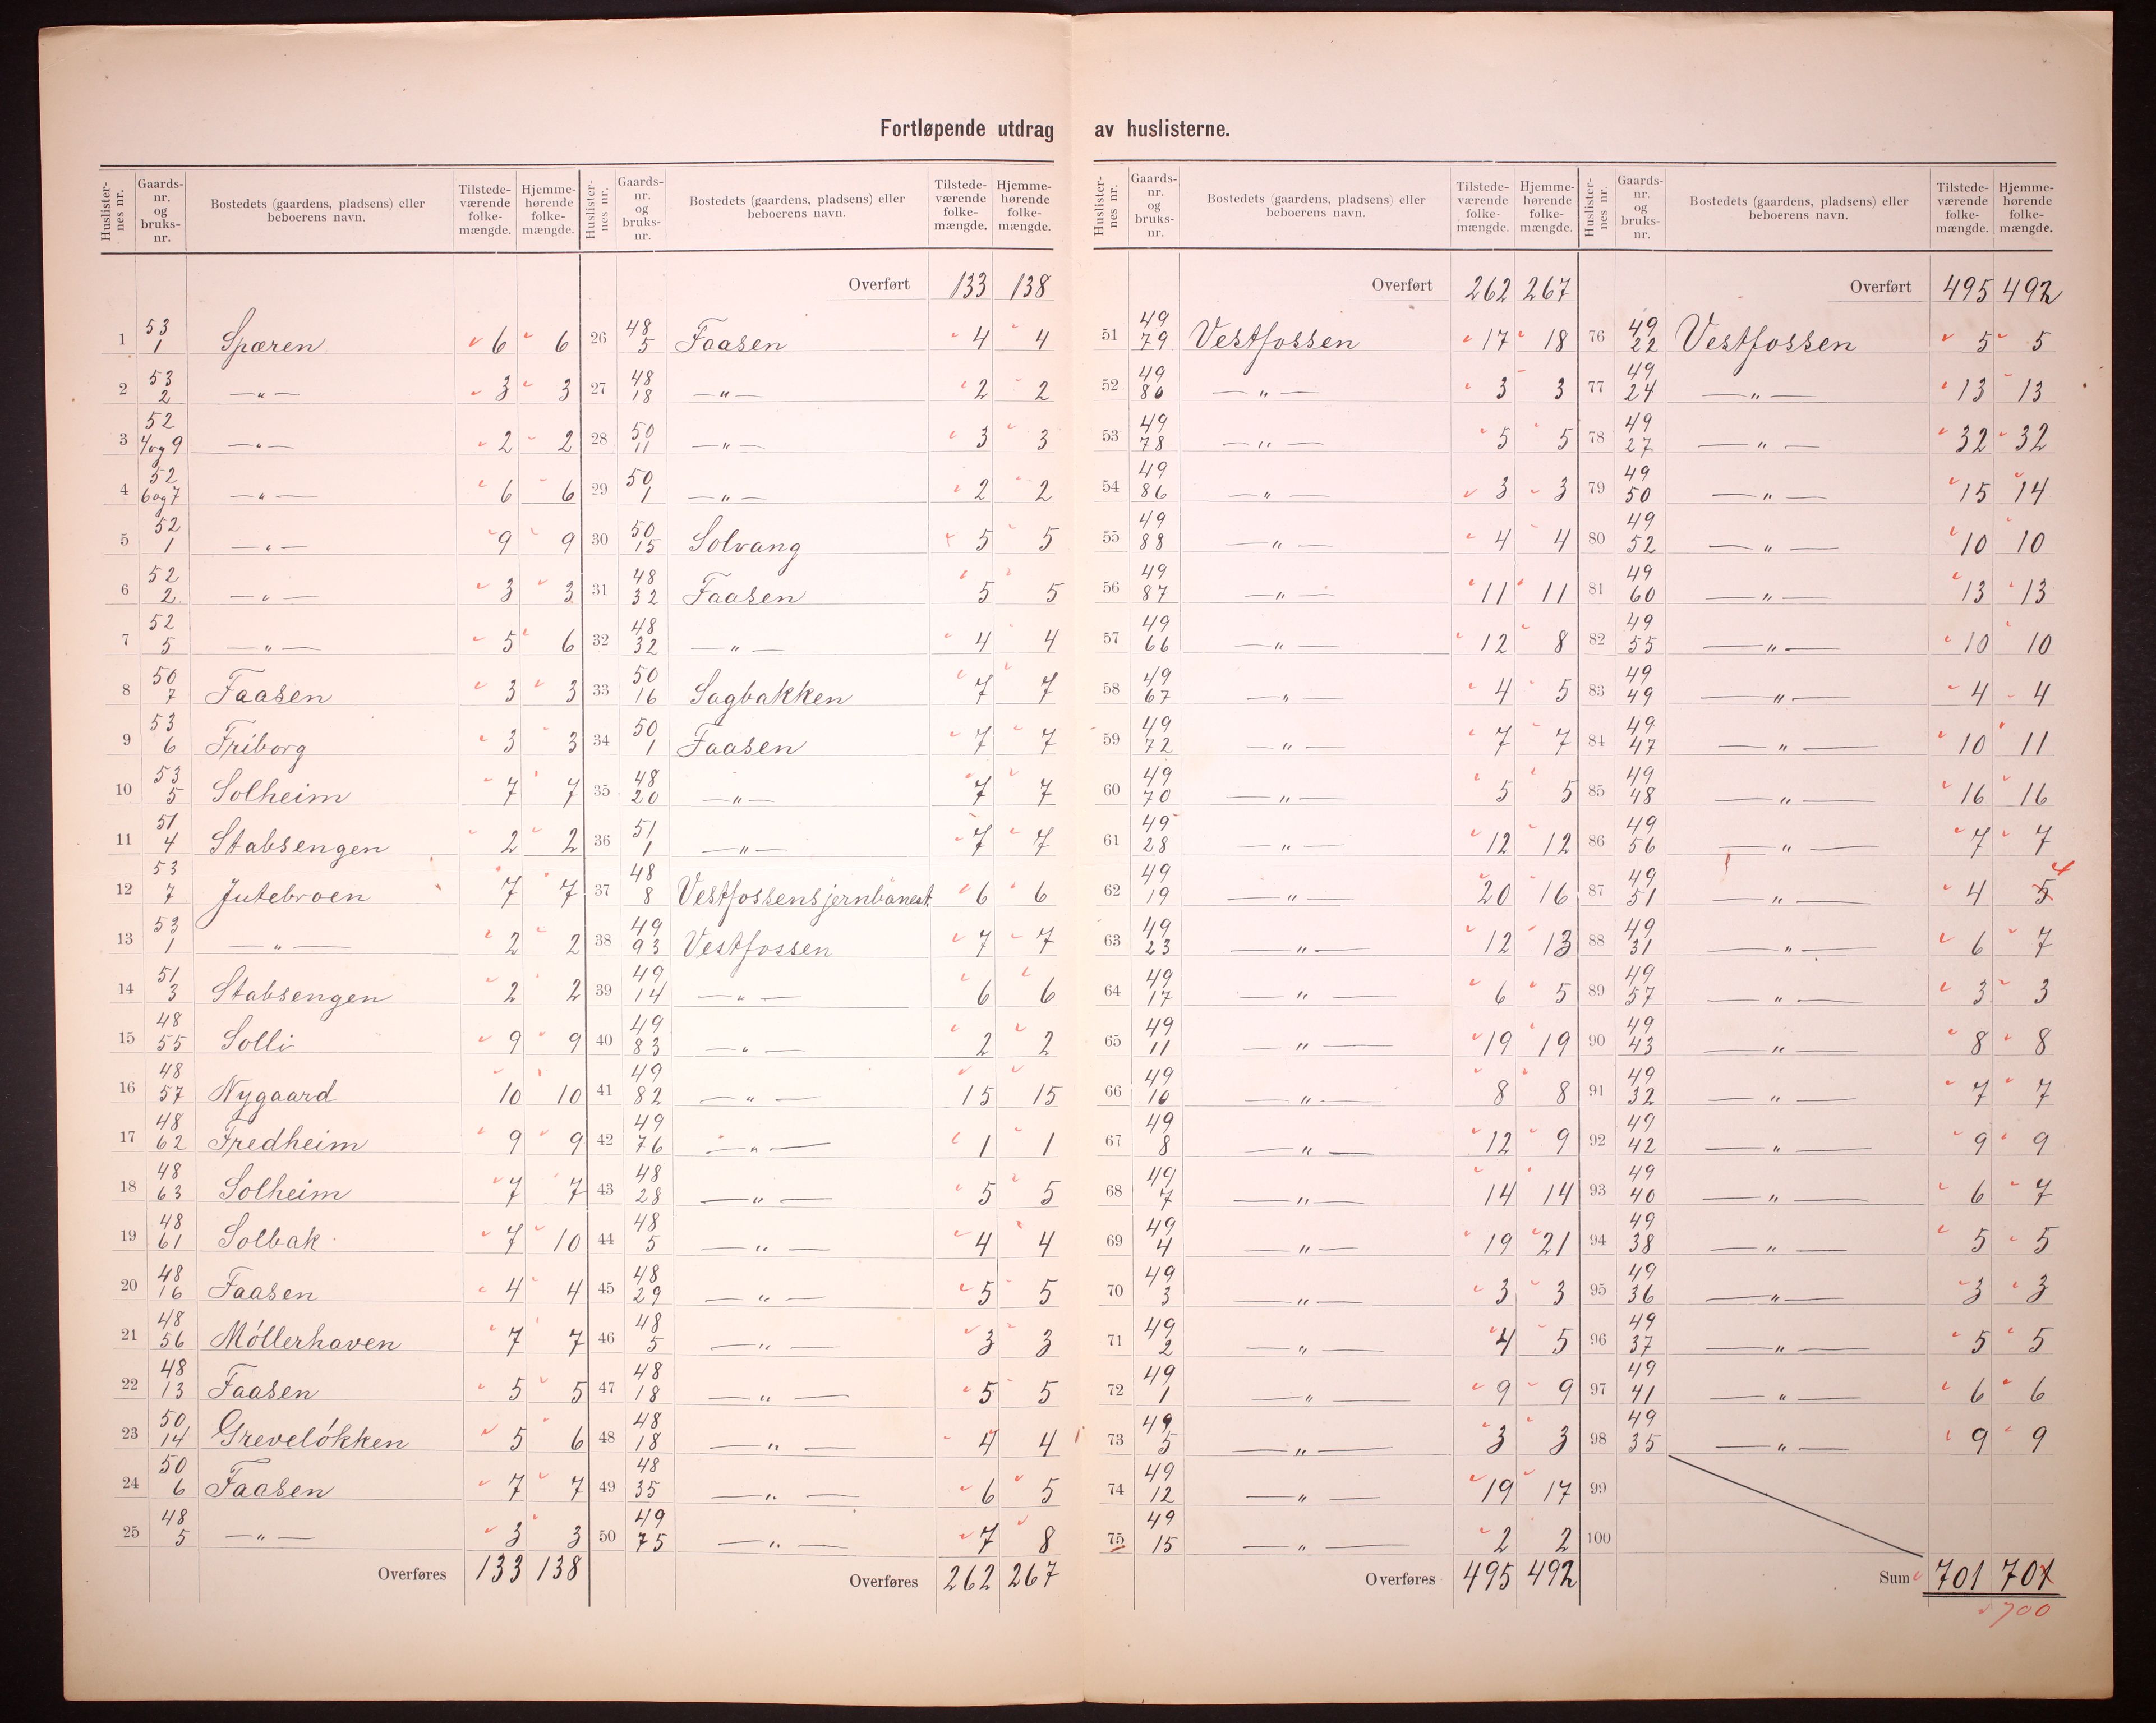 Fortløpende utdrag av huslisterne.
Huslister-nes nr. | Gaards-nr. og bruks-nr. | Bostedets (gaardens, pladsens) eller beboerens navn. | Tilstede-værende folke-mængde. | Hjemme-hørende folke-mængde.
1 53/1 Spæren 6 6
2 53/2 —„— 3 3
3 52/4og9 —„— 2 2
4 52/6og7 —„— 6 6
5 52/1 —„— 9 9
6 52/2 —„— 3 3
7 52/5 —„— 5 6
8 50/7 Faasen 3 3
9 53/6 Friborg 3 3
10 53/5 Solheim 7 7
11 51/4 Stabsengen 2 2
12 53/7 Jutebroen 7 7
13 53/1 —„— 2 2
14 51/3 Stabsengen 2 2
15 48/55 Solli 9 9
16 48/57 Nygaard 10 10
17 48/62 Fredheim 9 9
18 48/63 Solheim 7 7
19 48/61 Solbak 7 10
20 48/16 Faasen 4 4
21 48/56 Möllerhaven 7 7
22 48/13 Faasen 5 5
23 50/14 Grevelökken 5 6
24 50/6 Faasen 7 7
25 48/5 —„— 3 3
Overføres 133 138
Huslister-nes nr. | Gaards-nr. og bruks-nr. | Bostedets (gaardens, pladsens) eller beboerens navn. | Tilstede-værende folke-mængde. | Hjemme-hørende folke-mængde.
Overført 133 138
26 48/5 Faasen 4 4
27 48/18 —„— 2 2
28 50/11 —„— 3 3
29 50/1 —„— 2 2
30 50/15 Solvang 5 5
31 48/32 Faasen 5 5
32 48/32 —„— 4 4
33 50/16 Sagbakken 7 7
34 50/1 Faasen 7 7
35 48/20 —„— 7 7
36 51/1 —„— 7 7
37 48/8 Vestfossens jernbanest 6 6
38 49/93 Vestfossen 7 7
39 49/14 —„— 6 6
40 49/83 —„— 2 2
41 49/82 —„— 15 15
42 49/76 —„— 1 1
43 48/28 —„— 5 5
44 48/5 —„— 4 4
45 48/29 —„— 5 5
46 48/5 —„— 3 3
47 48/18 —„— 5 5
48 48/18 —„— 4 4
49 48/35 —„— 6 5
50 49/75 —„— 7 8
Overføres 262 267
Huslister-nes nr. | Gaards-nr. og bruks-nr. | Bostedets (gaardens, pladsens) eller beboerens navn. | Tilstede-værende folke-mængde. | Hjemme-hørende folke-mængde.
Overført 262 267
51 49/79 Vestfossen 17 18
52 49/80 —„— 3 3
53 49/78 —„— 5 5
54 49/86 —„— 3 3
55 49/88 —„— 4 4
56 49/87 —„— 11 11
57 49/66 —„— 12 8
58 49/67 —„— 4 5
59 49/72 —„— 7 7
60 49/70 —„— 5 5
61 49/28 —„— 12 12
62 49/19 —„— 20 16
63 49/23 —„— 12 13
64 49/17 —„— 6 5
65 49/11 —„— 19 19
66 49/10 —„— 8 8
67 49/8 —„— 12 9
68 49/7 —„— 14 14
69 49/4 —„— 19 21
70 49/3 —„— 3 3
71 49/2 —„— 4 5
72 49/1 —„— 9 9
73 49/5 —„— 3 3
74 49/12 —„— 19 17
75 49/15 —„— 2 2
Overføres 495 492
Huslister-nes nr. | Gaards-nr. og bruks-nr. | Bostedets (gaardens, pladsens) eller beboerens navn. | Tilstede-værende folke-mængde. | Hjemme-hørende folke-mængde.
Overført 495 492
76 49/22 Vestfossen 5 5
77 49/24 —„— 13 13
78 49/27 —„— 32 32
79 49/50 —„— 15 14
80 49/52 —„— 10 10
81 49/60 —„— 13 13
82 49/55 —„— 10 10
83 49/49 —„— 4 4
84 49/47 —„— 10 11
85 49/48 —„— 16 16
86 49/56 —„— 7 7
87 49/51 —„— 4 5 4
88 49/31 —„— 6 7
89 49/57 —„— 3 3
90 49/43 —„— 8 8
91 49/32 —„— 7 7
92 49/42 —„— 9 9
93 49/40 —„— 6 7
94 49/38 —„— 5 5
95 49/36 —„— 3 3
96 49/37 —„— 5 5
97 49/41 —„— 6 6
98 49/35 —„— 9 9
99
100
Sum 701 701
700